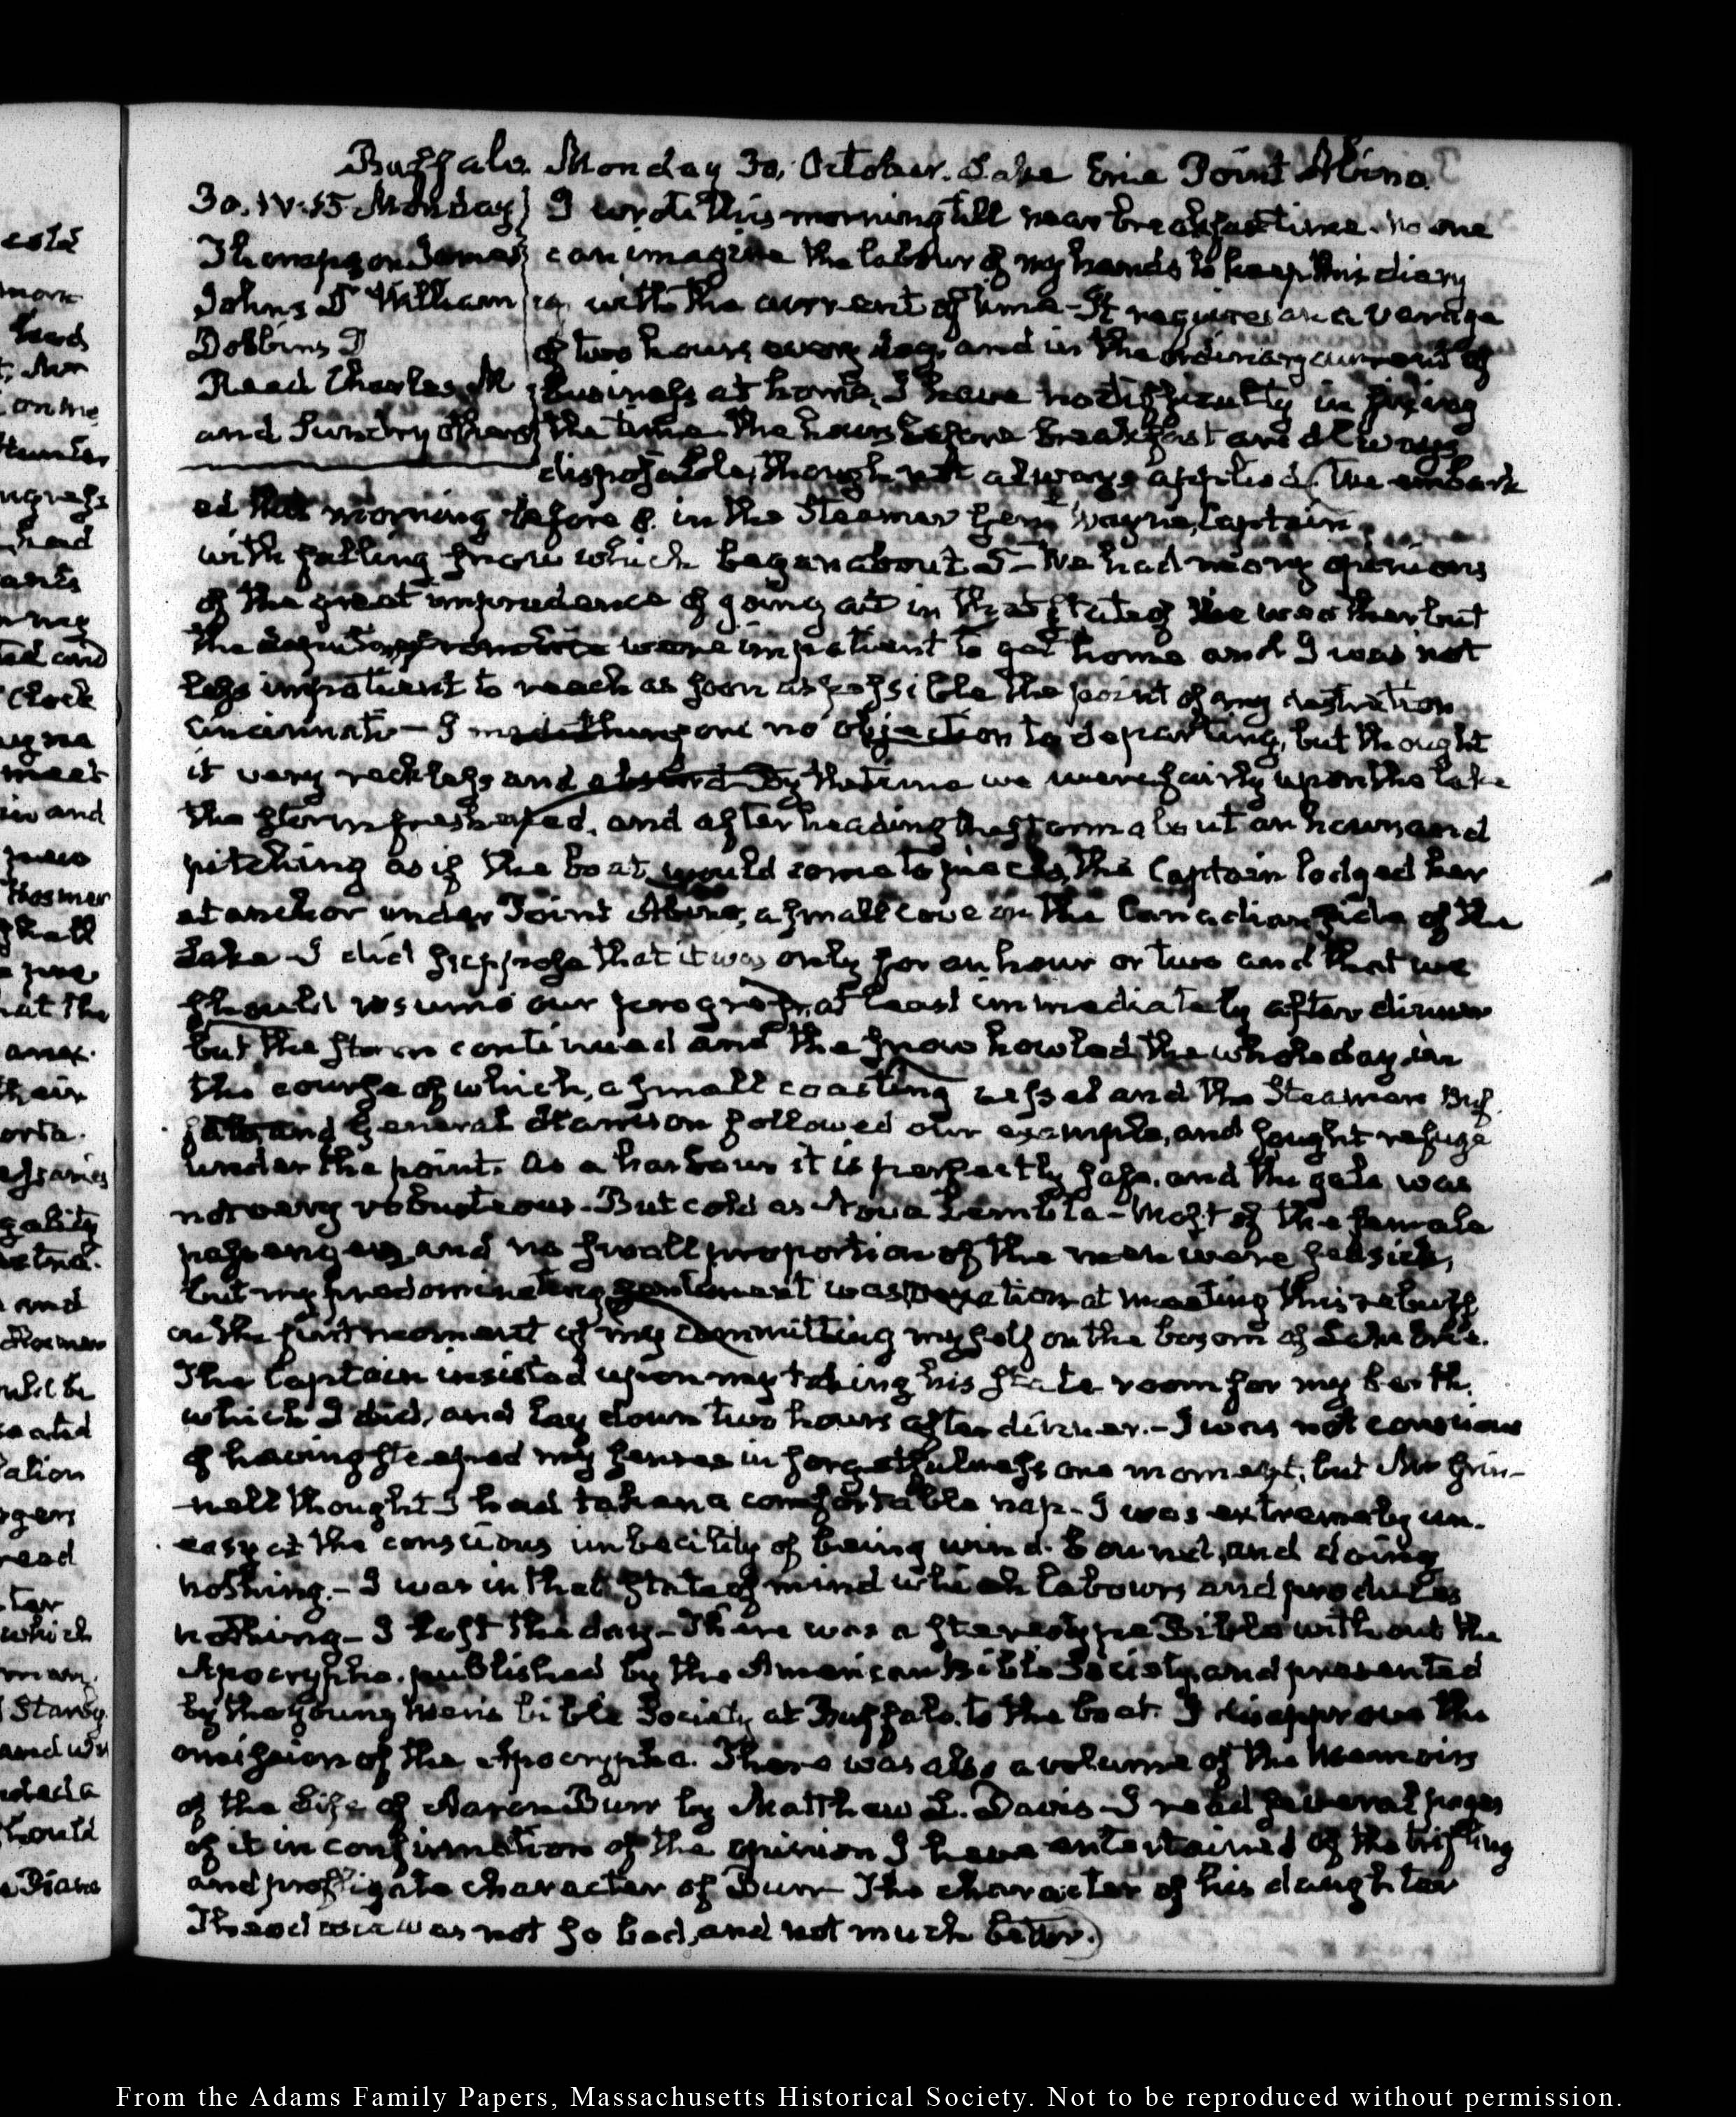 Buffalo. Monday 30. October. Lake Erie Point Abino.
30. IV:45. Monday
Thompson James
Johns D William
Dobbins D
Read Charles M
and Sundry others
I wrote this morning till near breakfast time. No one
can imagine the labour of my hands to keep this diary
with the current of time - It requires an average
of two hours every day, and in the ordinary current of
business at home, I have no difficulty in fixing
the time. The hours before breakfast are always
disposable, though not always applied. We embark
ed this morning before 8. in the Steamer Genl. Wayne, Captain
with falling snow which began about 5 - We had many opinions
of the great imprudence of going out in that state of the weather but
the were impatient to get home and I was not
less impatient to reach as soon as possible the point of my destination
Cincinnati - I made therefore no objection to departing, but thought
it very reckless and absurd. By the time we were fairly upon the lake
the storm freshened, and after heading the storm about an hour, and
pitching as if the boat would come to pieces, the Captain lodged her
at anchor under Point Abino, a small cove on the Canadian side of the
Lake - I did suppose that it was only for an hour or two and that we
should resume our progress, at least immediately after dinner
but the storm continued and the snow howled the whole day, in
the course of which, a small coasting vessel and the Steamers Buf-
falo, and General Harrison followed our example, and sought refuge
under the point. As a harbour it is perfectly safe, and the gale was
not very robusteous. But cold as Nova Zembla - Most of the female
passengers, and no small proportion of the men were seasick,
but my predominating sentiment was vexation at meeting this rebuff
on the first moment of my committing myself on the bosom of Lake Erie.
The Captain insisted upon my taking his state room for my berth,
which I did, and lay down two hours after dinner. - I was not conscious
of having steeped my senses in forgetfulness one moment, but Mr Grin-
nell thought I had taken a comfortable nap - I was extremely un-
easy at the conscious imbecility of being wind-bound, and doing
nothing. - I was in that state of mind which labours and produces
nothing - I lost the day - There was a stereotype Bible without the
Apocrypha. published by the American Bible Society, and presented
by the young Men's bible Society at Buffalo, to the boat. I disapprove the
omission of the Apocrypha. There was also a volume of the Memoirs
of the Life of Aaron Burr by Matthew L. Davis - I read several pages
of it in confirmation of the opinion I have entertained of the trifling
and profligate character of Burr - The character of his daughter
Theodosia was not so bad, and not much better.